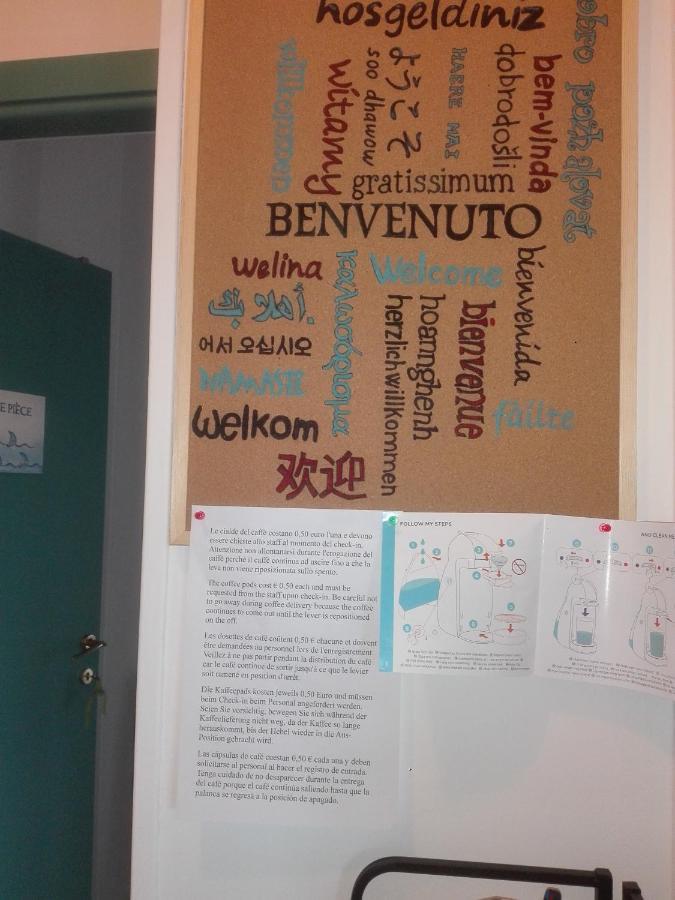 hoşgeldiniz
willkommen
witamy
soo dhawow
ようこそ
HAERE MAI
dobrodošli
bem-vinda
gratissimum
BENVENUTO
welina
Καλωσόρισμα
Welcome
bienvenida
أهلا بك
hoannghenh
herzlichwillkommen
bienvenue
어서 오십시오
NAMASTE
fàilte
welkom
欢迎
E PIÈCE
Le cialde del caffè costano 0,50 euro l'una e devono
essere chieste allo staff al momento del check-in.
Attenzione non allontanarsi durante l'erogazione del
caffè perchè il caffè continua ad uscire fino a che la
leva non viene riposizionata sullo spento.
The coffee pods cost € 0,50 each and must be
requested from the staff upon check-in. Be careful not
to go away during coffee delivery because the coffee
continues to come out until the lever is repositioned
on the off.
Les dosettes de café coûtent 0,50 € chacune et doivent
être demandées au personnel lors de l'enregistrement
Veillez à ne pas partir pendant la distribution du café
car le café continue de sortir jusqu'à ce que le levier
soit ramené en position d'arrêt.
Die Kaffeepads kosten jeweils 0,50 Euro und müssen
beim Check-in beim Personal angefordert werden.
Seien Sie vorsichtig, bewegen Sie sich während der
Kaffeelieferung nicht weg, da der Kaffee so lange
herauskommt, bis der Hebel wieder in die Aus-
Position gebracht wird.
Las cápsulas de café cuestan 0,50 € cada una y deben
solicitarse al personal al hacer el registro de entrada.
Tenga cuidado de no desaparecer durante la entrega
del café porque el café continúa saliendo hasta que la
palanca se regresa a la posición de apagado.
FOLLOW MY STEPS
AND CLEAN ME